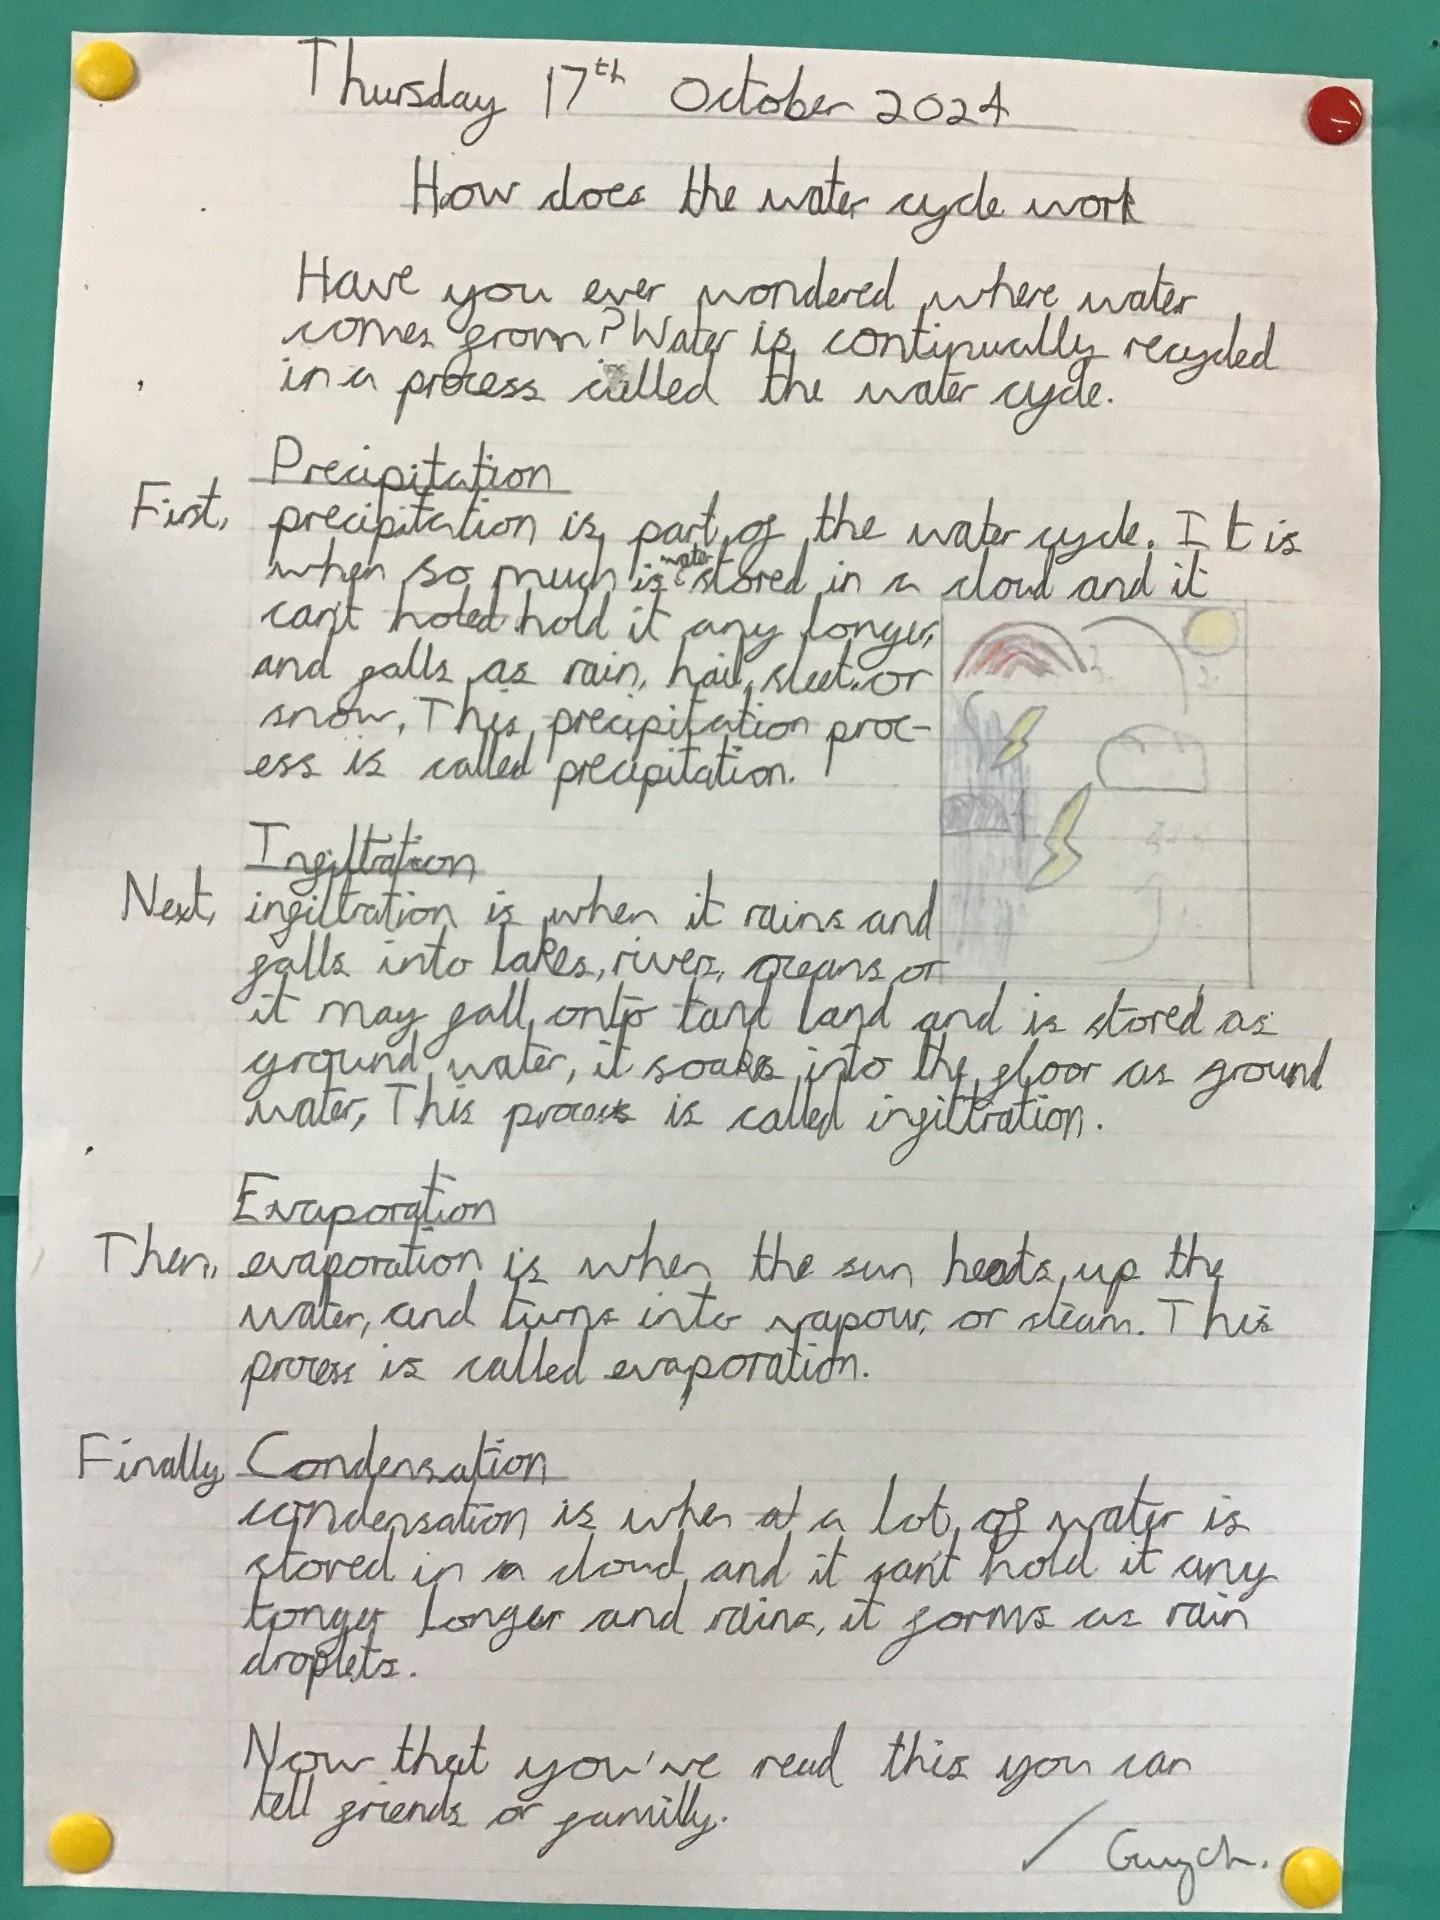 Thursday 17th October 2024
How does the water cycle work
Have you ever wondered where water
comes from? Water is continually recycled
in a process called the water cycle.
Precipitation
First, precipitation is part of the water cycle. It is
when so much is water stored in a cloud and it
can't holed hold it any longer,
and falls as rain, hail, sleet or
snow. This precipitation proc-
ess is called precipitation.
Infiltration
Next, infiltration is when it rains and
falls into lakes, river, oceans or
it may fall onto land and is stored as
ground water, it soaks into the floor as ground
water, This process is called infiltration.
Evaporation
Then, evaporation is when the sun heats up the
water, and turns into vapour, or steam. This
process is called evaporation.
Finally Condensation
condensation is when a lot of water is
stored in a cloud and it can't hold it any
longer longer and rains, it forms as rain
droplets.
Now that you've read this you can
tell friends or familly.